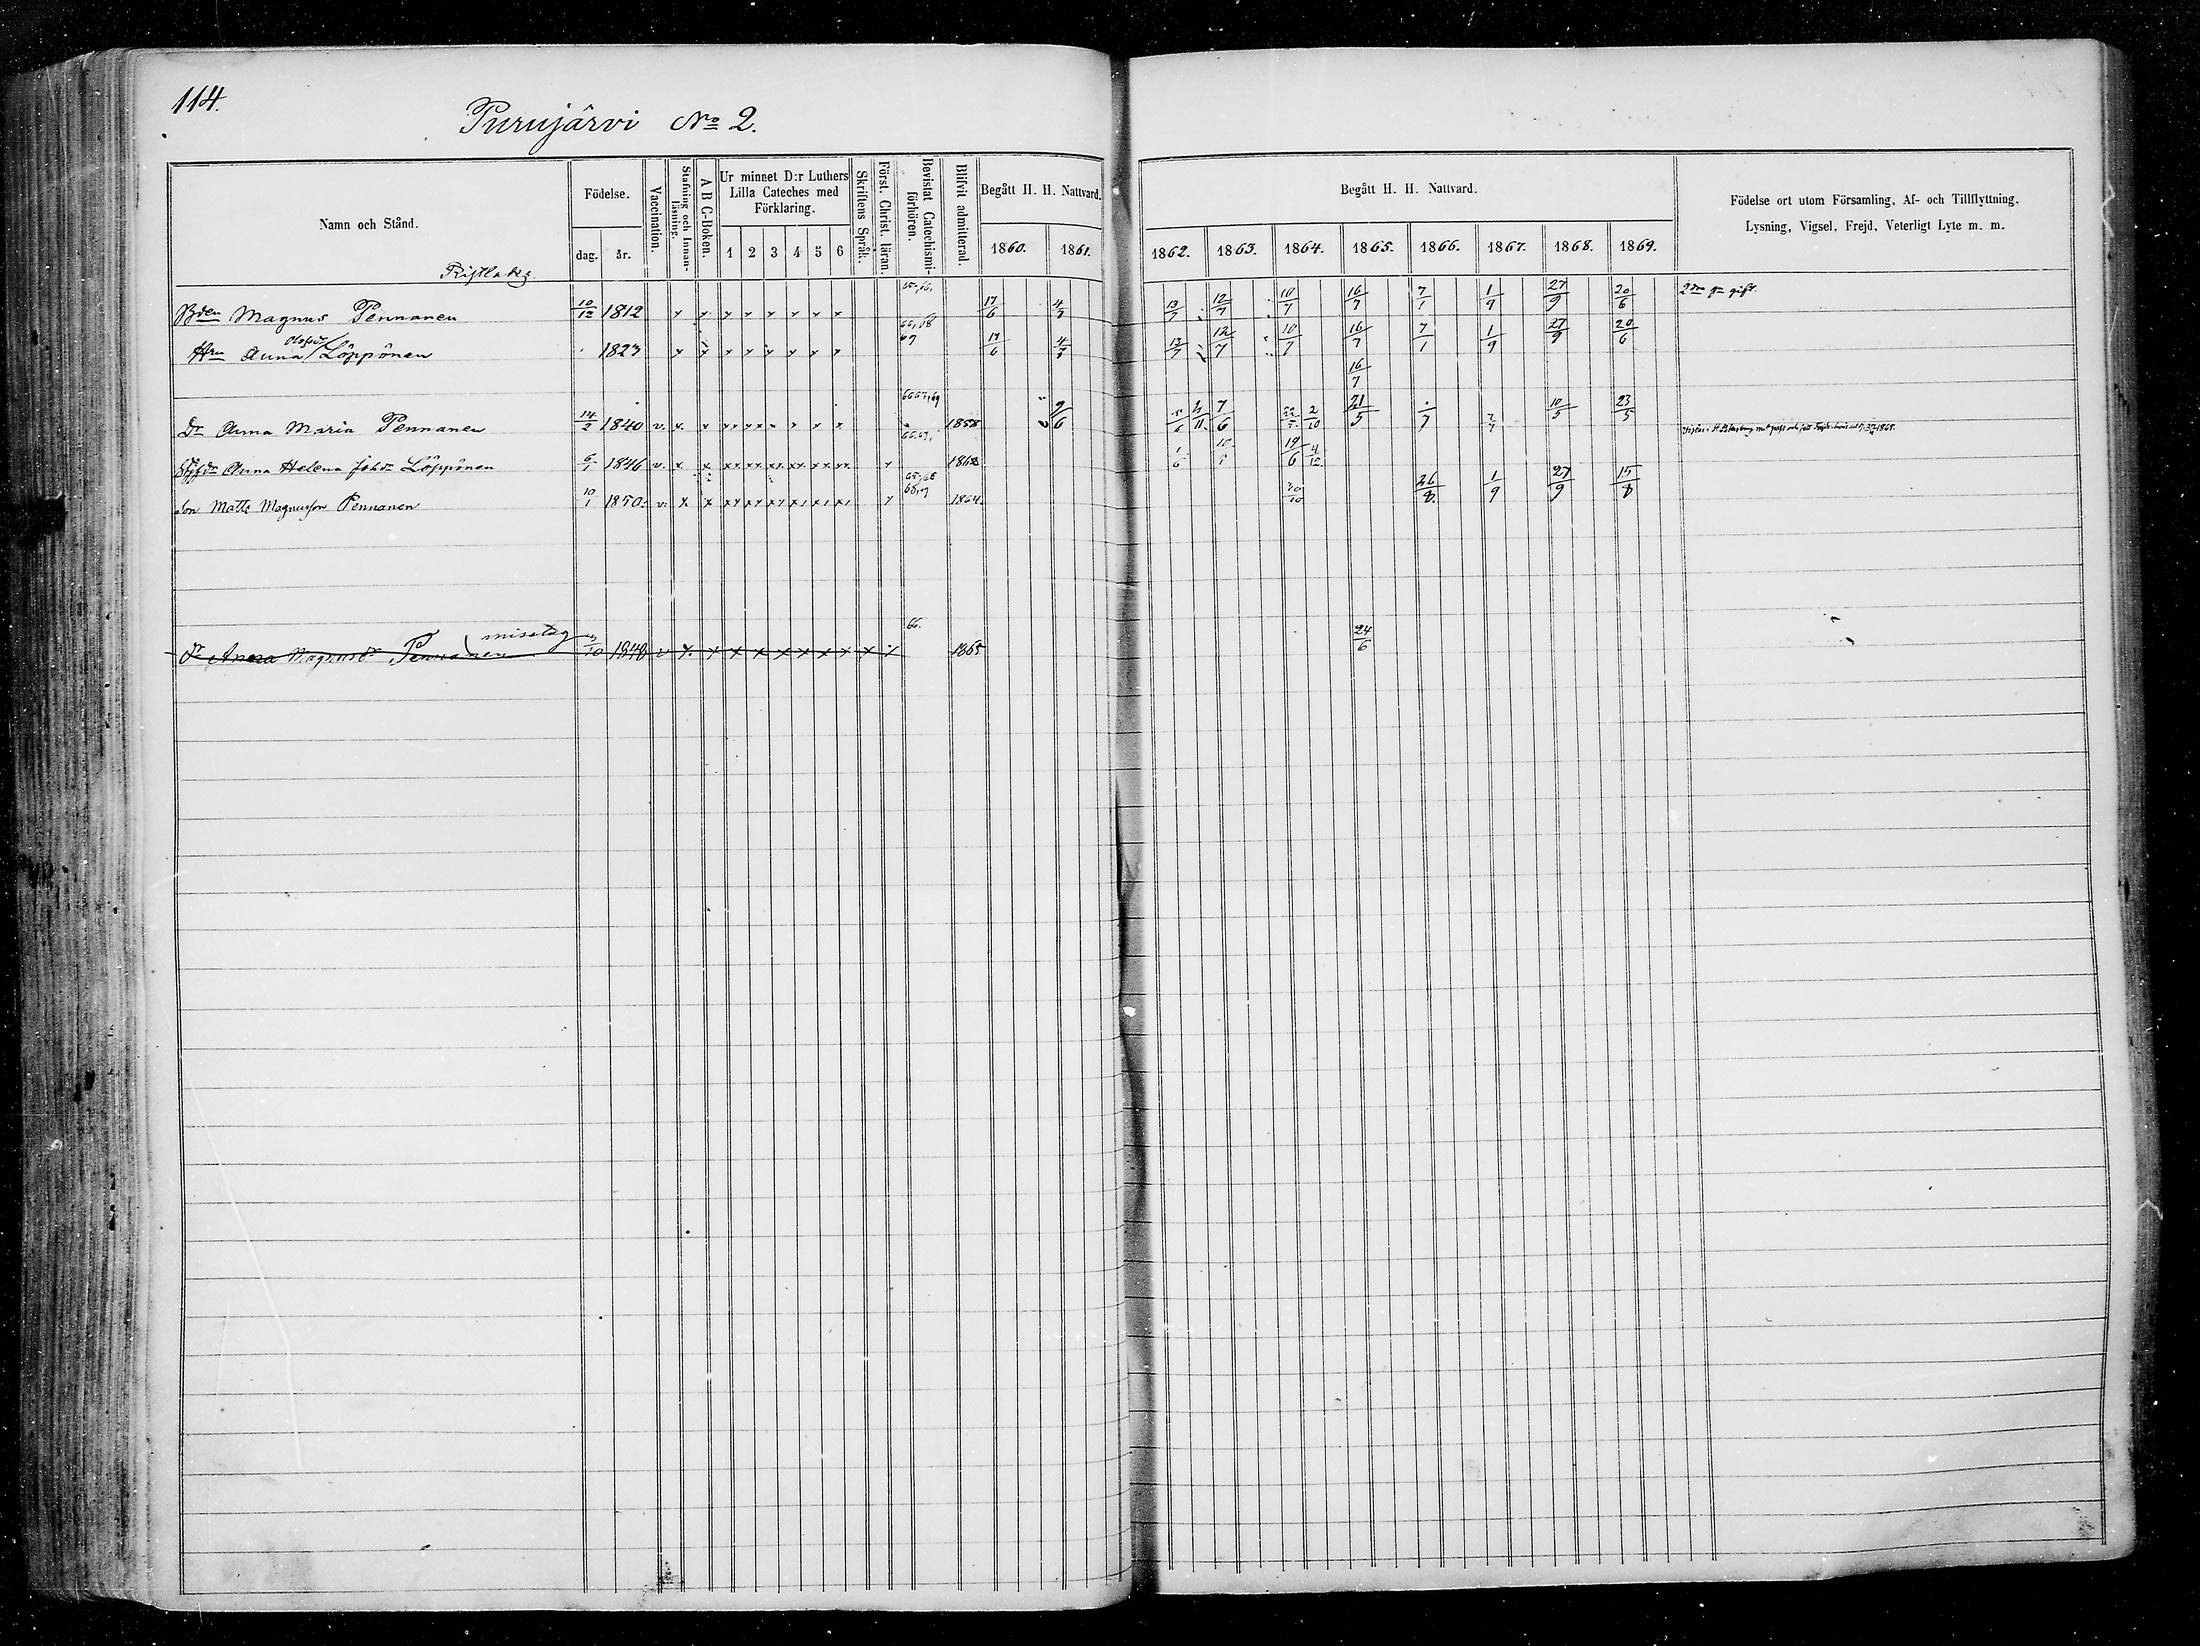 114.
Purujärvi No 2.
Namn och Stånd.
Födelse.
dag.
år.
Vaccination.
Stafning och Innanläsning.
A B C-Boken.
Ur minnet D:r Luthers Lilla Cateches med Förklaring.
1 2 3 4 5 6
Skriftens Språk.
Först. Christ. läran.
Bevistat Catechismiförhören.
Blifvit admitterad.
Begått H. H. Nattvard.
1860. 1861.
Begått H. H. Nattvard.
1862. 1863. 1864. 1865. 1866. 1867. 1868. 1869.
Födelse ort utom Församling, Af- och Tillflyttning, Lysning, Vigsel, Frejd, Veterligt Lyte m. m.
Bden Magnus Pennanen 10/12 1812 x x x x x x x x 65,66. 17/6 4/7 13/7 12/7 10/7 16/7 7/1 1/9 27/9 20/6 2dra g. gift.
Hru Anna Olofsdr Löppönen 1823 x x x x x x x x 66,68 69 17/6 4/7 13/7 12/7 10/7 16/7 7/1 1/9 27/9 20/6
16/7
Dr Anna Maria Pennanen 14/2 1840 v. x. x xx xx x x x x 66 67,69 1858 9/6 7/6 2/10 21/5 10/5 23/5
Anna Helena Johsdr Löppönen 6/1 1846 v. x. x xx. xx. xx. xx. xx. xx. x 19/6 4/12
Son Matts Magnusson Pennanen 10/1 1850. v. x x x 1864. 26/8. 1/9 27/9 15/8
Dr Anna Magnusdr Pennanen misstag 1848 v x. x x x x x x x x x 66. 1865 24/6